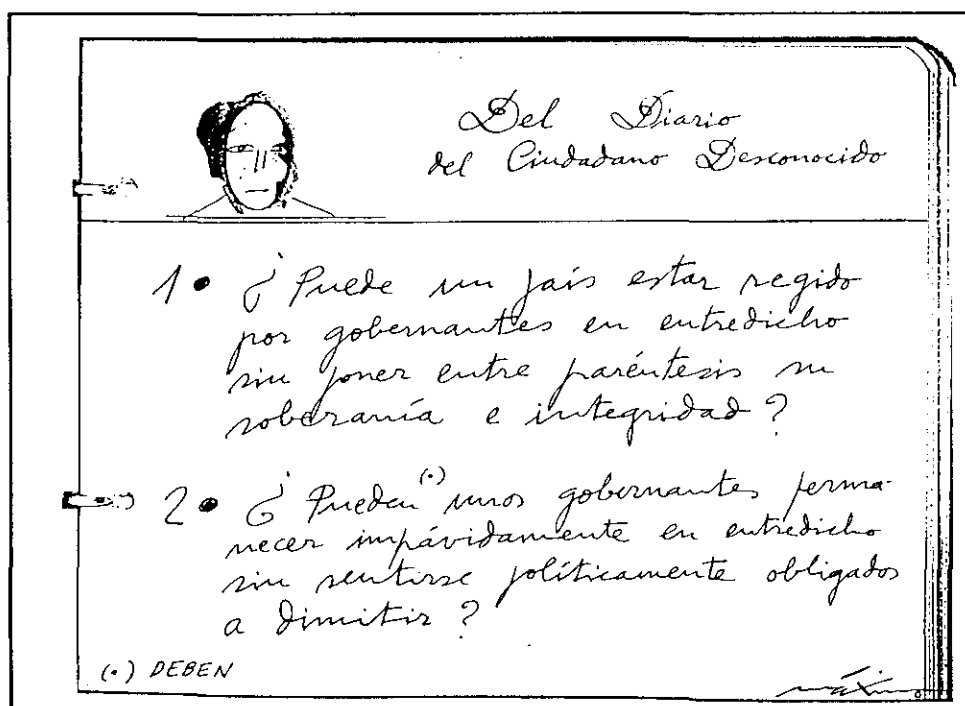 Del Diario
del Ciudadano Desconocido
1• ¿Puede un país estar regido
por gobernantes en entredicho
sin poner entre paréntesis su
soberanía e integridad?
2• ¿Pueden (•) unos gobernantes perma-
necer impávidamente en entredicho
sin sentirse políticamente obligados
a dimitir?
(•) DEBEN
máximo